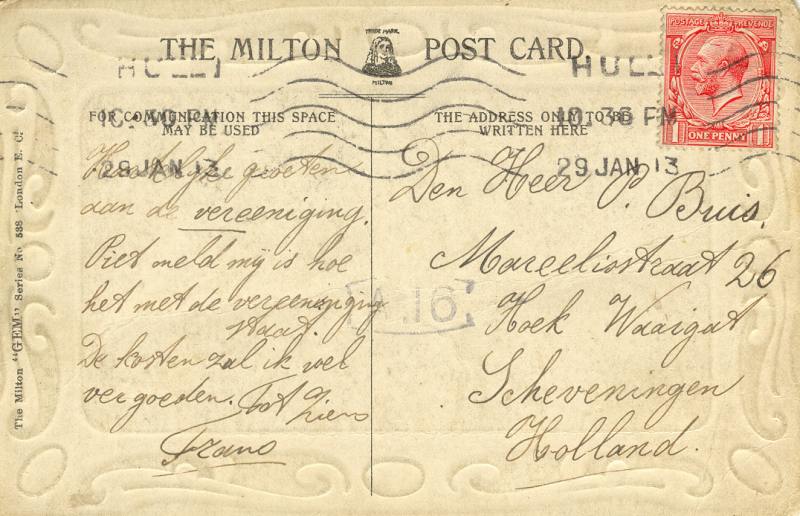 THE MILTON POST CARD
TRADE MARK
MILTON
POSTAGE REVENUE
1 ONE PENNY 1
HULL
10.30 PM
29 JAN 13
HULL
10.30 PM
29 JAN 13
FOR COMMUNICATION THIS SPACE
MAY BE USED
THE ADDRESS ONLY TO BE
WRITTEN HERE
Hartelijke groeten
aan de vereeniging.
Piet meld mij is hoe
het met de vereeniging
staat.
De kosten zal ik wel
vergoeden. Tot Ziens
Frans
A.16
Den Heer P. Buis.
Marcelisstraat 26
Hoek Waaigat
Scheveningen
Holland.
The Milton "GEM" Series No 538 London E. C.